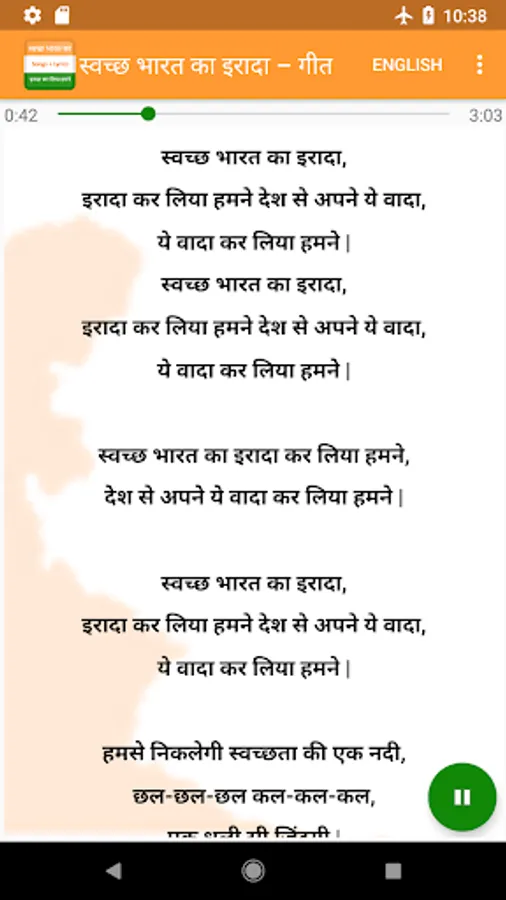 10:38
स्वच्छ भारत का इरादा – गीत ENGLISH
0:42 3:03
स्वच्छ भारत का इरादा,
इरादा कर लिया हमने देश से अपने ये वादा,
ये वादा कर लिया हमने |
स्वच्छ भारत का इरादा,
इरादा कर लिया हमने देश से अपने ये वादा,
ये वादा कर लिया हमने |
स्वच्छ भारत का इरादा कर लिया हमने,
देश से अपने ये वादा कर लिया हमने |
स्वच्छ भारत का इरादा,
इरादा कर लिया हमने देश से अपने ये वादा,
ये वादा कर लिया हमने |
हमसे निकलेगी स्वच्छता की एक नदी,
छल-छल-छल कल-कल-कल,